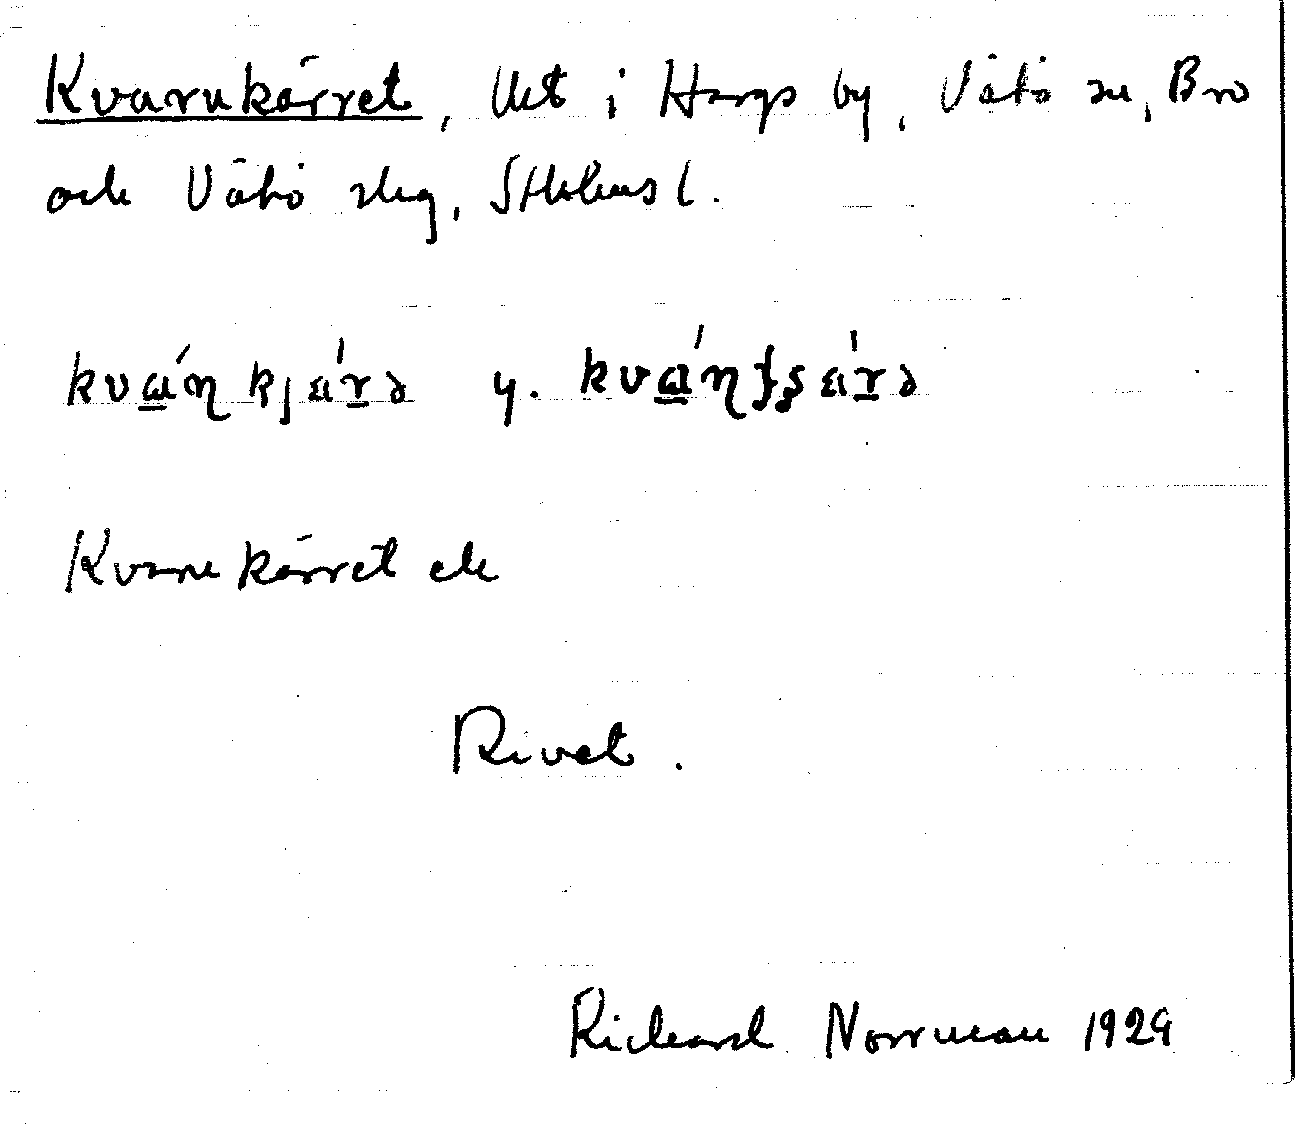 Kvarnkärret, Utt i Hargs by, Vätö sn, Bro
och Vätö skg, Sthlms l.
kvɑ́ɳkjä́rə y. kvɑ́ɳʈʂä́rə
Kvarnkärret ek
Rivet.
Richard Norrman 1929